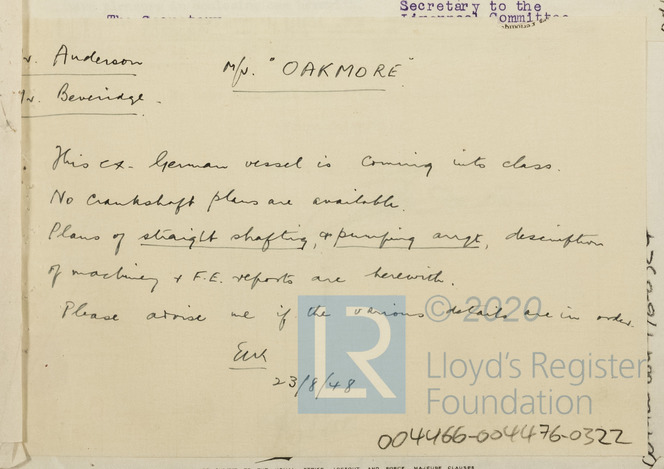 Secretary to the
Liverpool Committee
The Secretary
Mr. Anderson
M/v. "OAKMORE"
Mr. Beveridge.
This ex-German vessel is coming into class.
No crankshaft plans are available.
Plans of straight shafting, & pumping arrgt, description
of machinery & F.E. reports are herewith.
Please advise me if the various details are in order.
23/8/48
LR
© 2020
Lloyd's Register
Foundation
004466-004476-0322